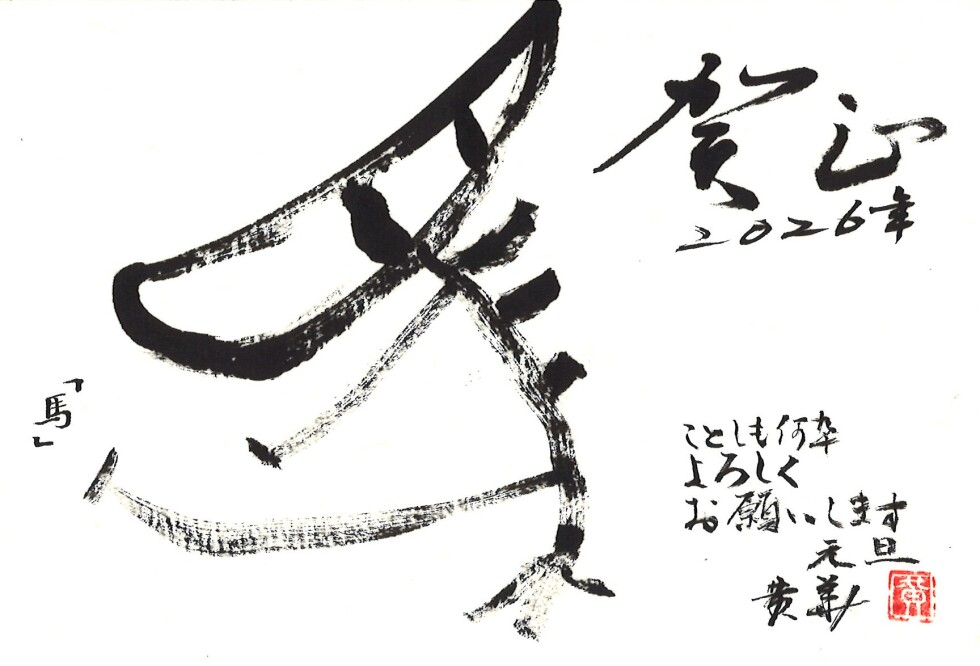 賀正
2026年
「馬」
ことしも何卒
よろしく
お願いします
元旦
黄華
黄